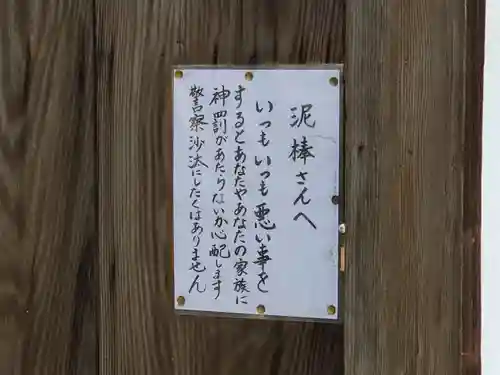 泥棒さんへ
いつもいつも悪い事を
するとあなたやあなたの家族に
神罰があたりないか心配します
警察沙汰にしたくはありません